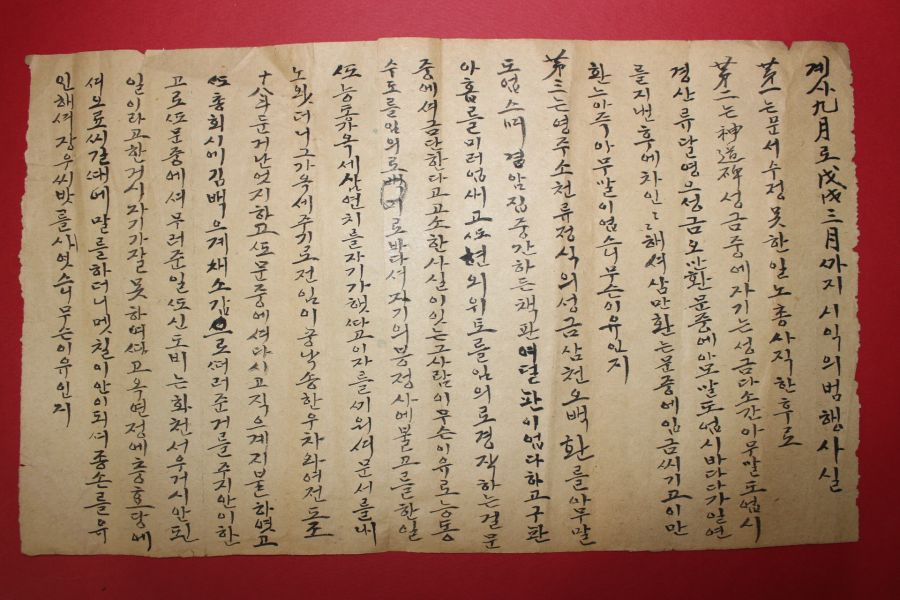 계사九月로戊戌三月까지 시익의 범행사실
第一는 문서 수정 못한 일 노총사직 한 후로
第二는 神道碑 성금 중에 자기는 성금 다소간 아무말도 업시
경산 류달영 은 성금 오만환 문중에 아모말도 업시 바다가 일연
를 지낸 후에 차인 해셔 삼만환는 문중에 입금 씨기고 이만
환는 아즉 아무말이 업스니 무슨 이유인지
第三는 영주 소천 류정식의 성금 삼천오백환를 아무말
도 업스며 겸암집 중간하든 책판 여덜 판이 업다하고 구판
아홉를 미러 업새고 또 현외 위토를 임의로 경작하는 걸 문
중에셔 금단한다고 고소한 사실이 잇는 그 사람이 무슨 이유로 능동
수도를 임의로 바다셔 자기의 부정사에 불고를 한 일
또 능동가옥세 삼연치를 자기가 햇다고 이자를 씨워셔 문서를 내
노왓더니 그 가옥세 주기로 전임이 중낙 송한우 차와여전도로
十八斗 둔 거 난 언지하고 또 문중에셔 다시 고직으게 지불하엿고
또 총회시에 김백으게 채소갑으로 떠러준 거를 주지 안이한
고로 또 문중에셔 무러준 일 또 신도비는 화천서우 거시 안된
일이라고 한 거시 자기가 잘못하여다고 옥연정에 충효당에
셔 모욕씨길 때에 말를 하더니 멧칠이 안이되며 종손를 유
인해셔 장우씨 밧를 사엇스니 무슨 이유인지